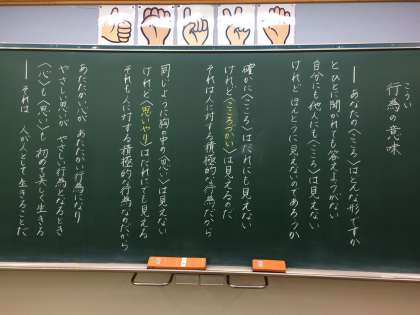 こう い
行為の意味
――あなたの〈こころ〉はどんな形ですか
とひとに聞かれても答えようがない
自分にも他人にも〈こころ〉は見えない
けれどほんとうに見えないのであろうか
確かに〈こころ〉はだれにも見えない
けれど〈こころづかい〉は見えるのだ
それは人に対する積極的な行為だから
同じように胸の中の〈思い〉は見えない
けれど〈思いやり〉はだれにでも見える
それも人に対する積極的な行為なのだから
あたたかい心が あたたかい行為になり
やさしい思いが やさしい行為になるとき
〈心〉も〈思い〉も 初めて美しく生きる
――それは 人が人として生きることだ